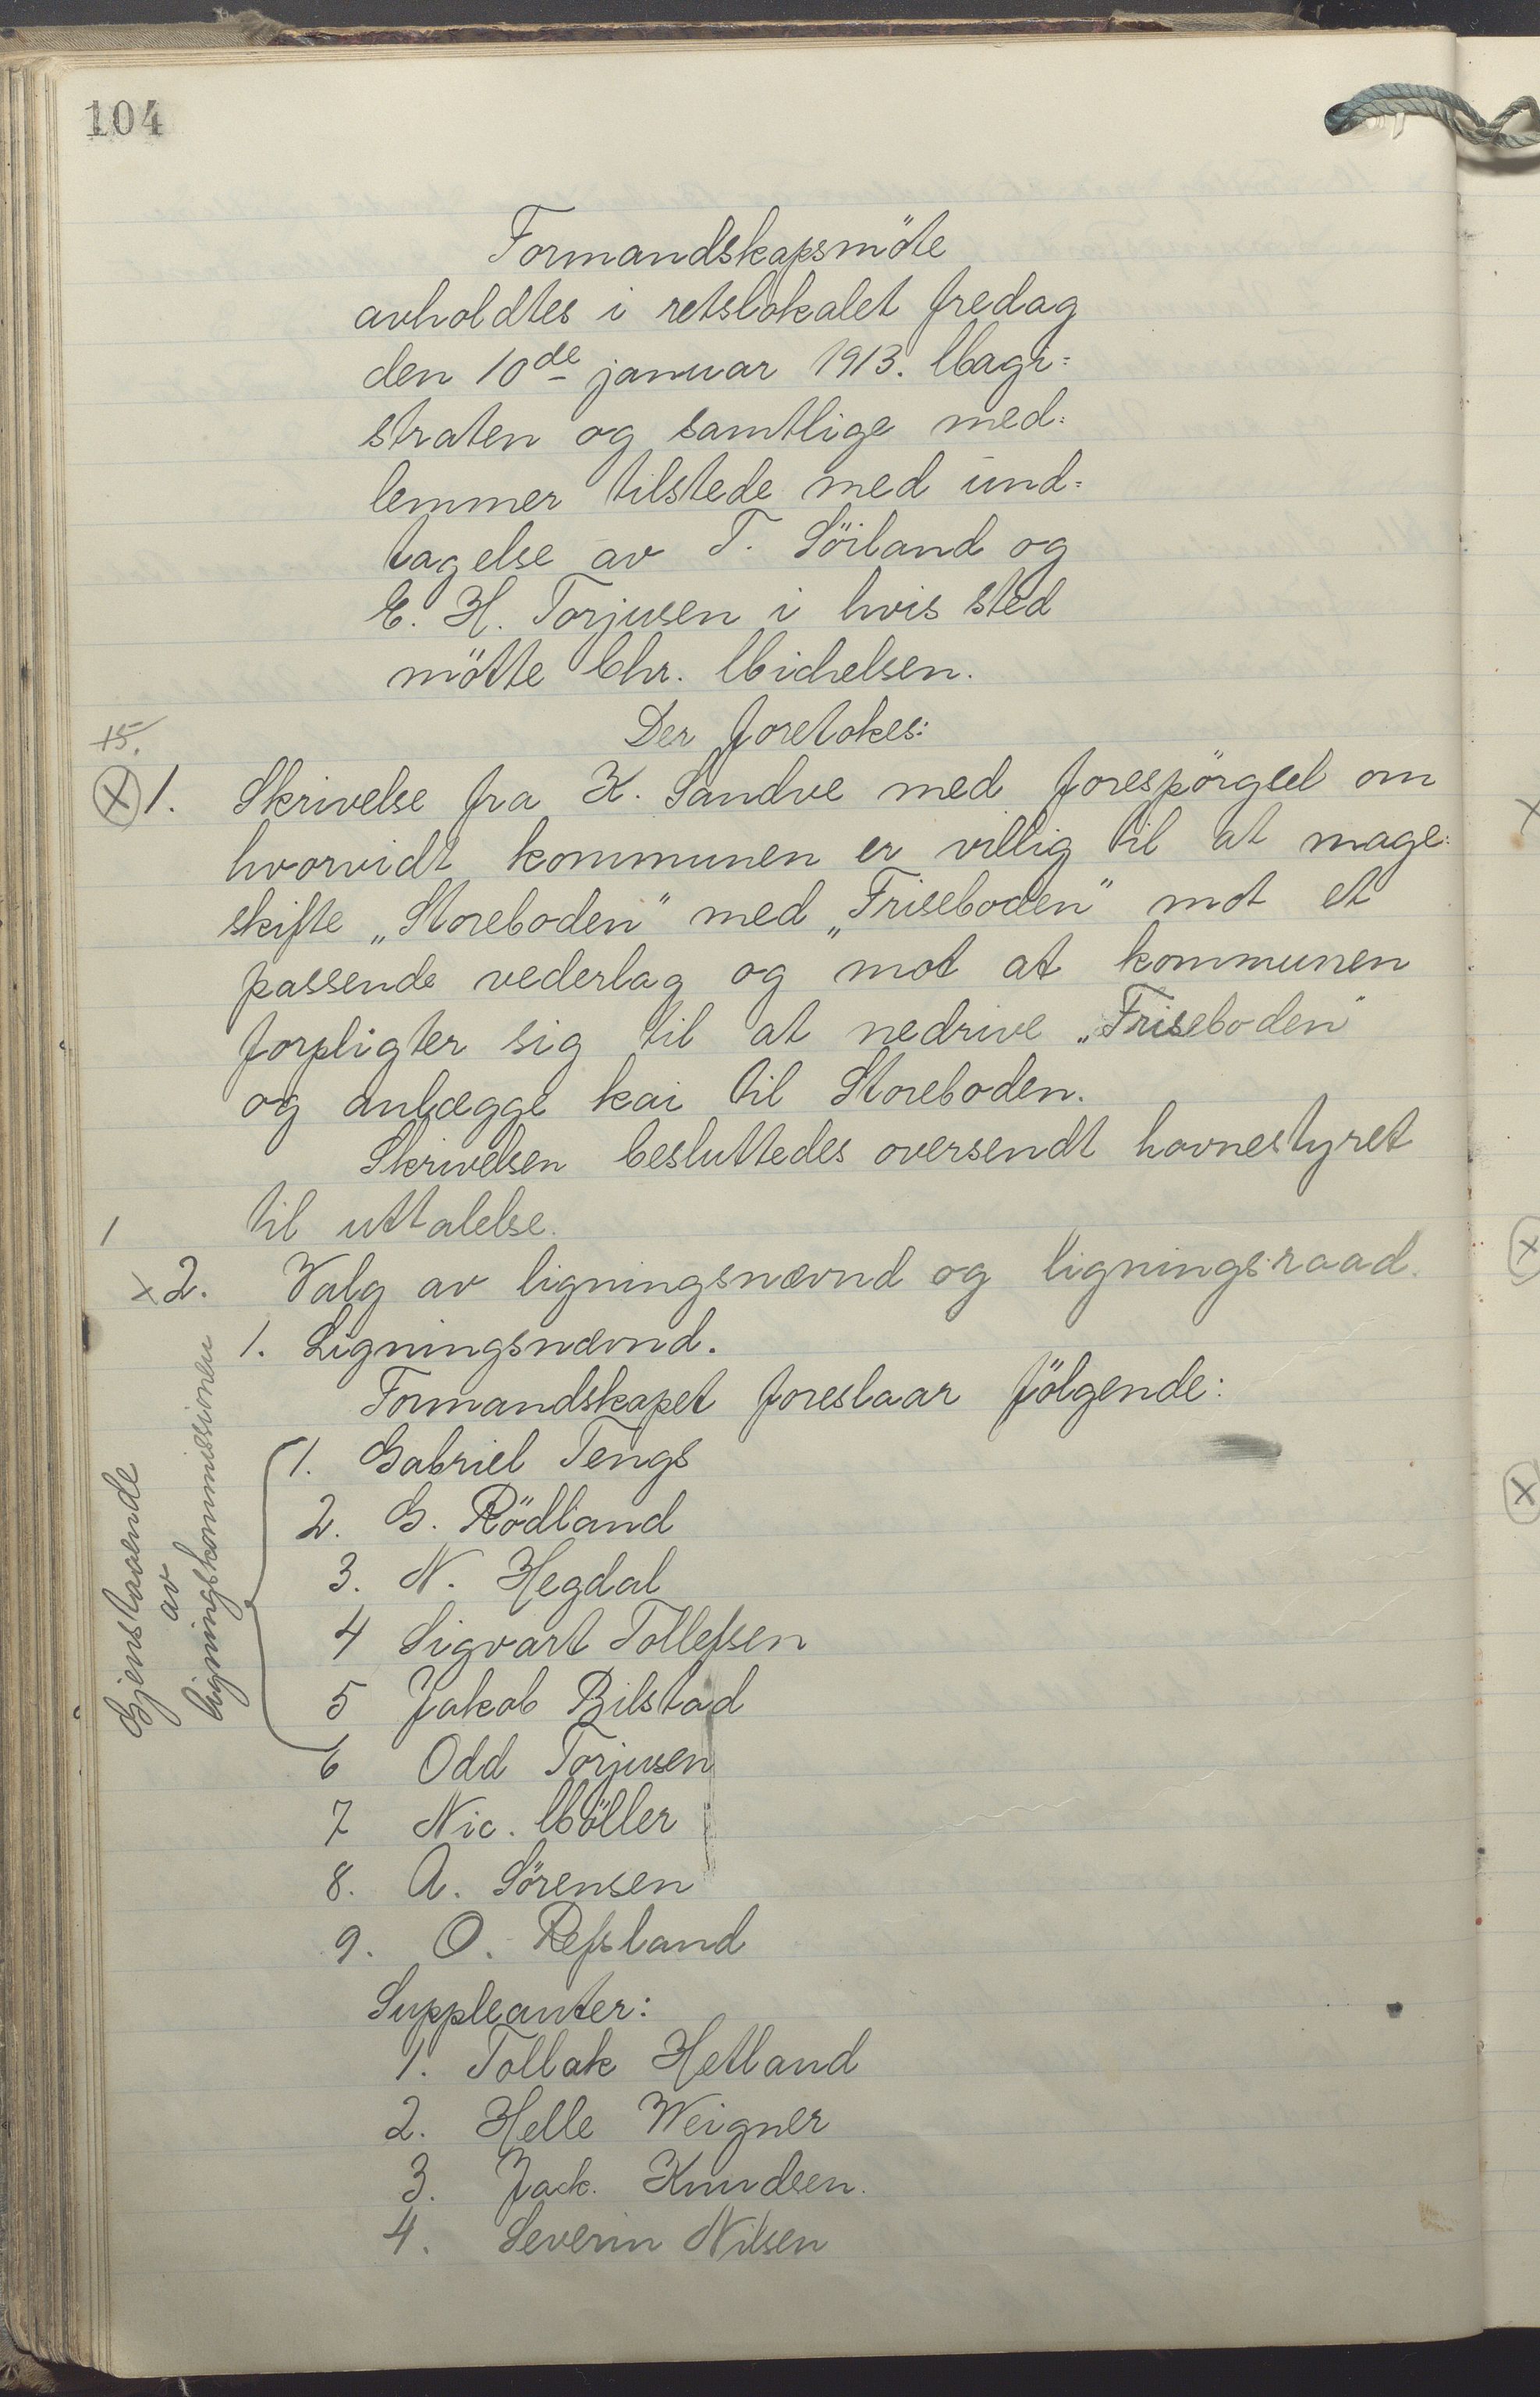 104
Formandskapsmöte
avholdtes i retslokalet fredag
den 10de januar 1913. Magi=
straten og samtlige med=
lemmer tilstede med und=
tagelse av T. Söiland og
E. H. Torjusen i hvis sted
mötte Chr. Michelsen.
Der foretokes:
15.
x 1. Skrivelse fra K. Sandve med forespörgsel om
hvorvidt kommunen er villig til at mage=
skifte „Storeboden" med „Friseboden" mot et
passende vederlag og mot at kommunen
forpligter sig til at nedrive „Friseboden"
og anlægge kai til Storeboden.
Skrivelsen besluttedes oversendt havnestyret
til uttalelse.
1
x 2. Valg av ligningsnævnd og ligningsraad.
1. Ligningsnævnd.
Formandskapet foreslaar fölgende:
Gjenstaaende
av
ligningskommissionen
1. Gabriel Tengs
2. G. Rödland
3. N. Hegdal
4 Sigvart Tollefsen
5 Jakob Bilstad
6 Odd Torjusen
7 Nic. Möller
8. A. Sörensen
9. O. Refsland
Suppleanter:
1. Tollak Hetland
2. Helle Weigner
3. Jack. Knudsen.
4. Severin Nilsen